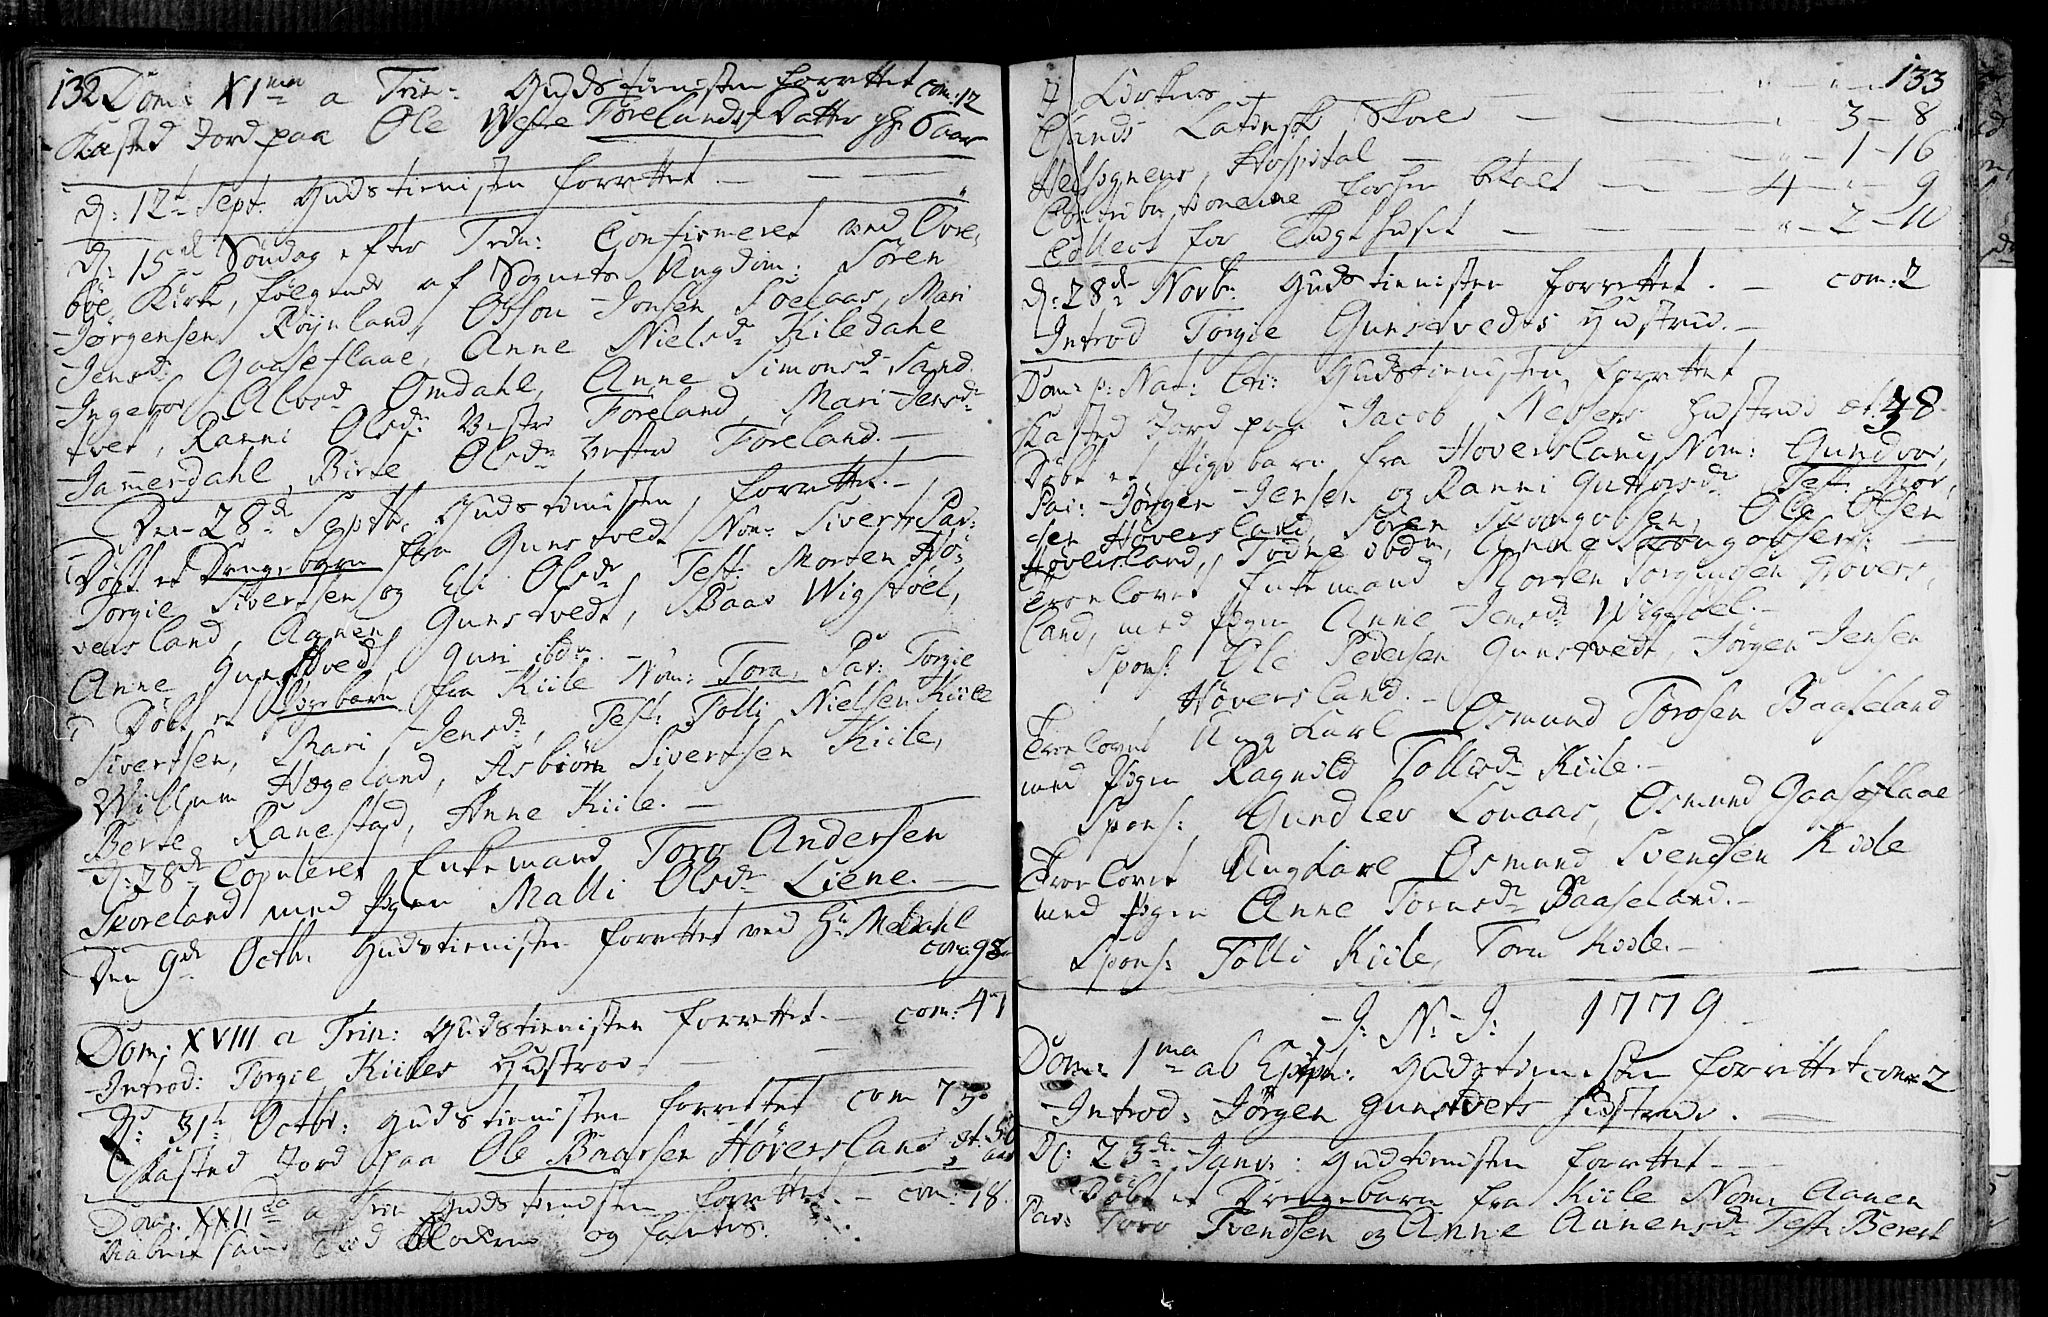 132 Dom: XI ma a Trin: Gudstienisten forrettet com: 12
Kasted Jord paa Ole Westre Forelands Datter 6 aar
d: 12t Sept: Gudstienisten forrettet
d: 15de Søndag efter Trin: Confirmeret ved Øve,
bøe Kirke, følgende af Sognets Ungdom: Søren
Jørgensen Røynland, Osson Jonsen Soelaas, Mari
Jensd: Gaaseflaae, Anne Nielsd: Kiledahl
Ingebor Alvsd Omdahl, Anne Simonsd Sand
tvet, Ranni Olsd: Vestre Foreland, Mari Jensd:
Jammerdahl, Birte Olsd: Vestre Foreland.
Den 28de Septbr. Gudstienisten forrettet.
Døbt et Drengebarn fra Gunstvedt Nom: Sivert Par:
Torgie Sivertsen og Eli Olsd: Test: Morten Hö,
versland, Aanen Gunstvedt, Baar Wigstøel,
Anne Gunstvedt, Guri ibdm
Døbt et Pigebarn fra Kiile Nom: Tora, Par: Torgie
Sivertsen, Mari Jensd:, Test: Tolli Nielsen Kiile
Willum Hægeland, Asbiörn Sivertsen Kiile,
Berte Ranestad, Anne Kiile.
d: 28de Copuleret Enkemand Toro Andersen
Skoreland med Pigen Malli Olsd: Liene.
Den 9de Octbr. Gudstienisten forrettet ved Hr Meldahl
com: 98
Dom: XVIII a Trin: Gudstienisten forrettet. com: 47
Introd: Torgie Kiiles Hustroe
d: 31te Octbr: Gudstienisten forrettet com 73
Kasted Jord paa Ole Baarsen Höversland æt: 50 aar
Dom: XXII da a Trin Gudstienisten forrettet. com: 18.
og
133
Kirkens
Chrands Latinske Skole 3 - 8
Helsognens Hospital 1 - 16
Contribu: betalt 4 - 9
Collect for Tugthuset 2 - 10
d: 28de Novbr: Gudstienisten forrettet. com: 2
Introd Torgie Gunstvedts Hustrue.
Dom: p: Nat: Chr: Gudstienisten forrettet
Kasted Jord paa Jacob Nessets Hustrue æt: 38
Døbt et Pigebarn fra Höversland, Nom: Gundvor,
Par: Jörgen Jensen og Ranni Guttorsd: Test: Mor,
ten Höversland, Sören, Ole Olsen
Höversland, Todne ibdm, Anne
Troelovet Enkemand Morten Torgiusen Hövers,
land, med Pigen Anne Jensd: Wigstøel.
Spons: Ole Pedersen Gunstvedt, Jörgen Jensen
Höversland.
Troelovet Ungkarl Osmund Torosen Baaseland
med Pigen Ragnild Tollisd: Kiile.
Spons: Gundlev Lonaas, Osmund Gaaseflaae
Troelovet Ungkarl Osmund Svendsen Kiile
med Pigen Anne Torosd: Baaseland.
Spons: Tolli Kiile, Toru Kiile.
J: N: J: 1779
Dom: 1ma ab Epiph: Gudstienesten forrettet com: 2
Introd: Jörgen Gunstvets Hustrue.
d: 23de Janv: Gudstienisten forrettet
Døbt et Drengebarn fra Kiile Nom: Aanen
Par: Toro Svendsen og Anne Aanensd: Test: Berent